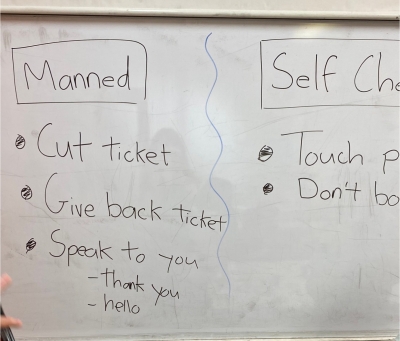 Manned
Cut ticket
Give back ticket
Speak to you
- thank you
- hello
Self
Touch
Don't